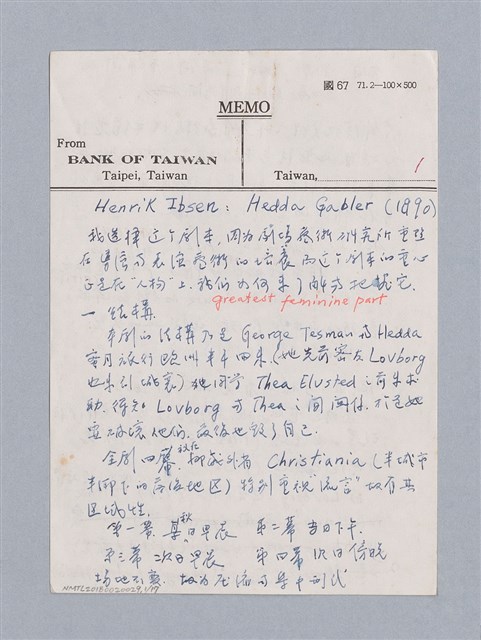 國 67 71.2—100×500
MEMO
From
BANK OF TAIWAN
Taipei, Taiwan
Taiwan,
1
Henrik Ibsen: Hedda Gabler (1890)
我選擇这个劇本,因为劇場藝術研究所重點
在導演与表演藝術的培養而这个劇本的重心
正是在"人物"上.我们为何来了解与把握它.
greatest feminine part
一 結構.
本劇的結構乃是 George Tesman 与 Hedda
蜜月旅行歐洲半年回來(她先前密友 Lovborg
也來到城裏) 她同学 Thea Elvsted 之前來求
助.得知 Lovborg 与 Thea 之間関係.於是她
要破壞他们.最後也毀了自己.
全劇四幕 Christiania (半城市
半鄉下的落後地区) 特別重視"流言"故有其
区域性.
第一幕.某秋日早晨 第二幕 当日下午.
第三幕 次日早晨 第四幕 次日傍晚
場地不变. 故为压縮与集中形式
NMTL20180020029,1/19